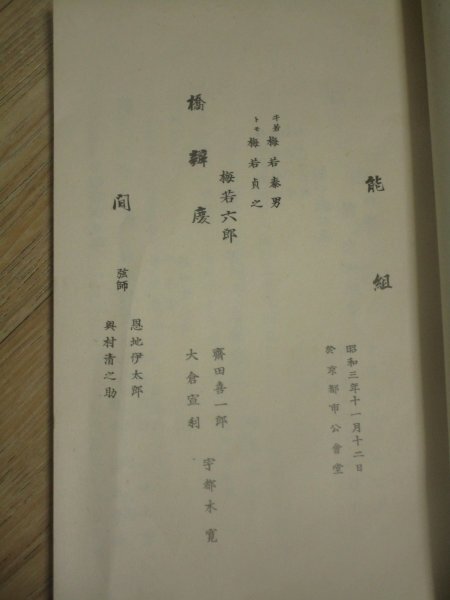 能組
昭和三年十一月十二日
於京都市公會堂
牛若 梅若泰男
トモ 梅若貞之
梅若六郎
橋辨慶
齊田喜一郎
大倉宣利
宇都木寛
間
弦師
恩地伊太郎
奥村清之助